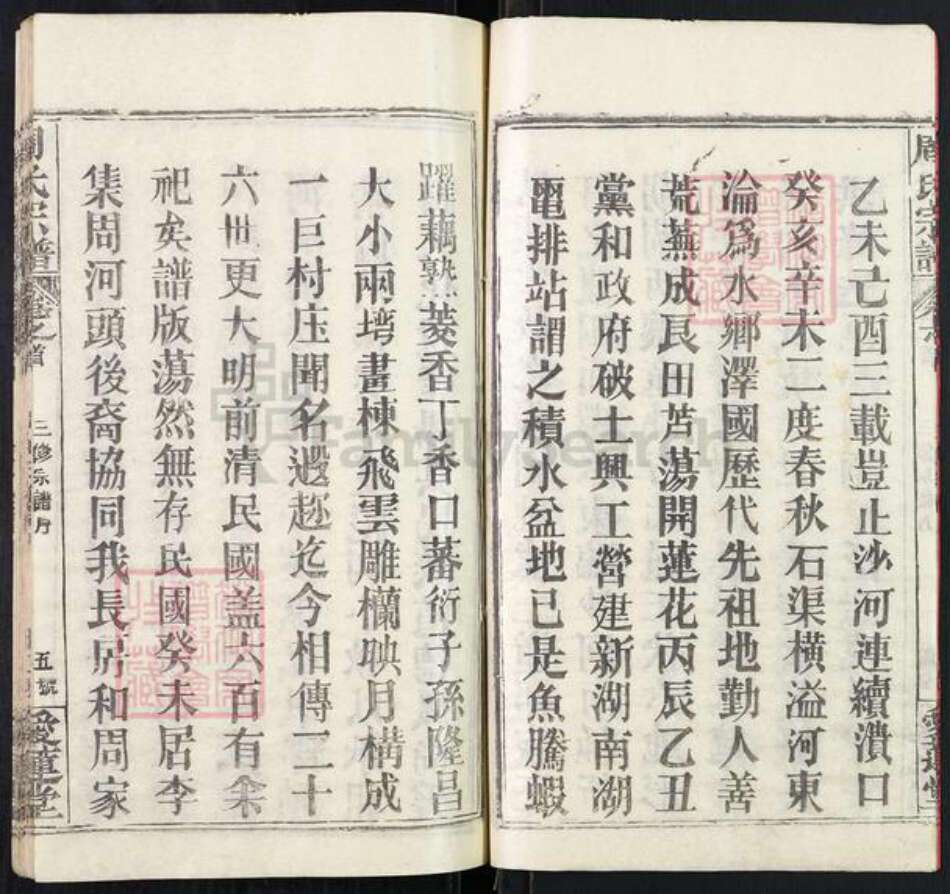 乙未己酉三載豈止沙河連續潰口
癸亥辛未二度春秋石渠橫溢河東
淪爲水鄉澤國歷代先祖地勤人善
荒蕪成良田芦蕩開蓮花丙辰乙丑
黨和政府破土興工營建新湖南湖
電排站謂之積水盆地已是魚騰蝦
躍藕熟菱香丁香口蕃衍子孫隆昌
大小兩塆畫棟飛雲雕欄映月構成
一巨村庄聞名遐邇迄今相傳二十
六世更大明前清民國盖六百有余
祀矣譜版蕩然無存民國癸未居李
集周河頭後裔協同我長房和周家
周氏宗譜
卷之首
三修宗譜序
五號
愛蓮堂
FamilySearch